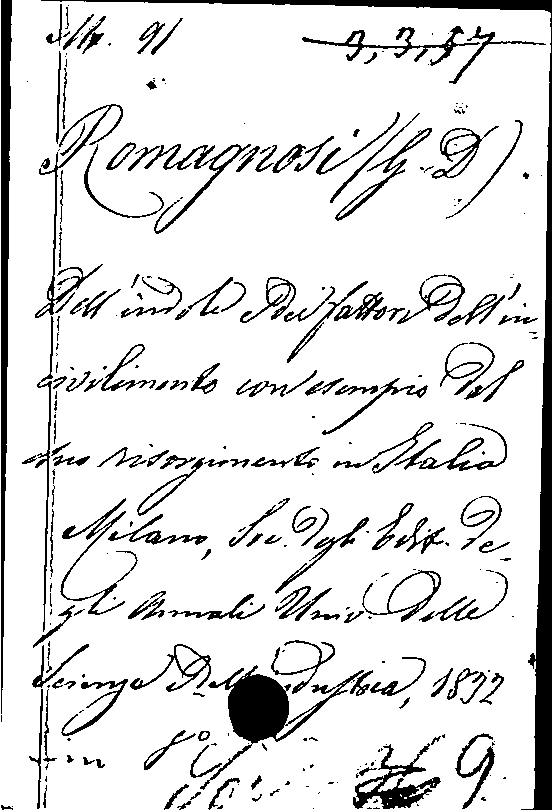 M. 91 3,3,57
Romagnosi (G. D.)
Dell'indole e dei fattori dell'in-
civilimento con esempio del
suo risorgimento in Italia
Milano, Soc. degli Edit. de-
gli Annali Univ. delle
Scienze e dell'industria, 1832
in 8º
9